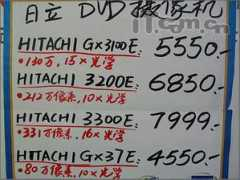 日立 DVD 摄像机
IT.com.cn
HITACHI Gx3100E: 5550.-
•130万, 15×光学
HITACHI 3200E: 6850.-
•212万像素, 10×光学
HITACHI 3300E: 7999.-
•331万像素, 16×光学
HITACHI Gx37E: 4550.-
•80万像素, 10×光学